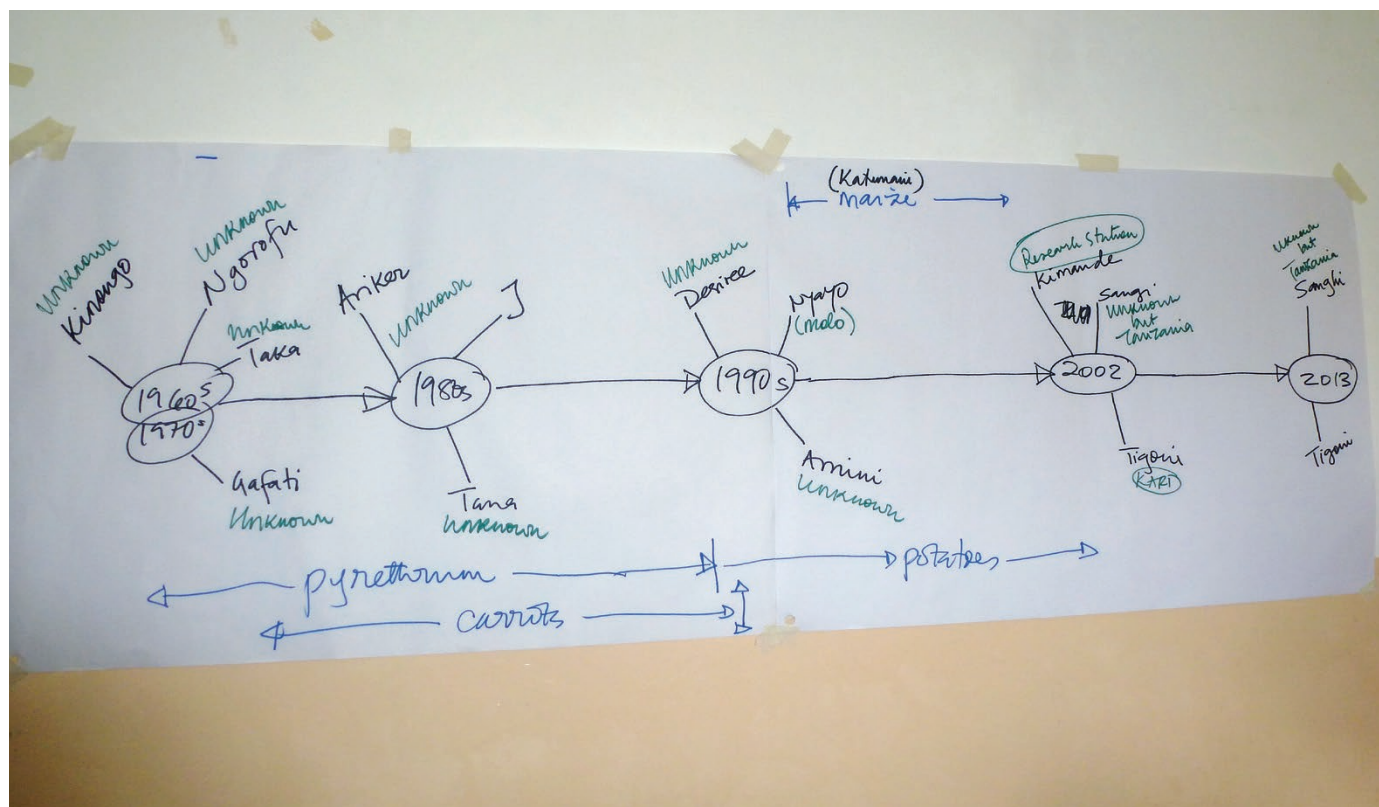 (Katumani)
maize
Unknown
Kinongo
Unknown
Ngorofu
Unknown
Taka
1960s
1970s
Gafati
Unknown
Ariker
Unknown
J
1980s
Tana
Unknown
Unknown
Desiree
Nyayo
(Molo)
1990s
Amini
Unknown
Research Station
Kimande
Sangi
Unknown
but
Tanzania
2002
Tigoni
KARI
Uknown
but
Tanzania
Sanghi
2013
Tigoni
pyrethrum
potatoes
carrots